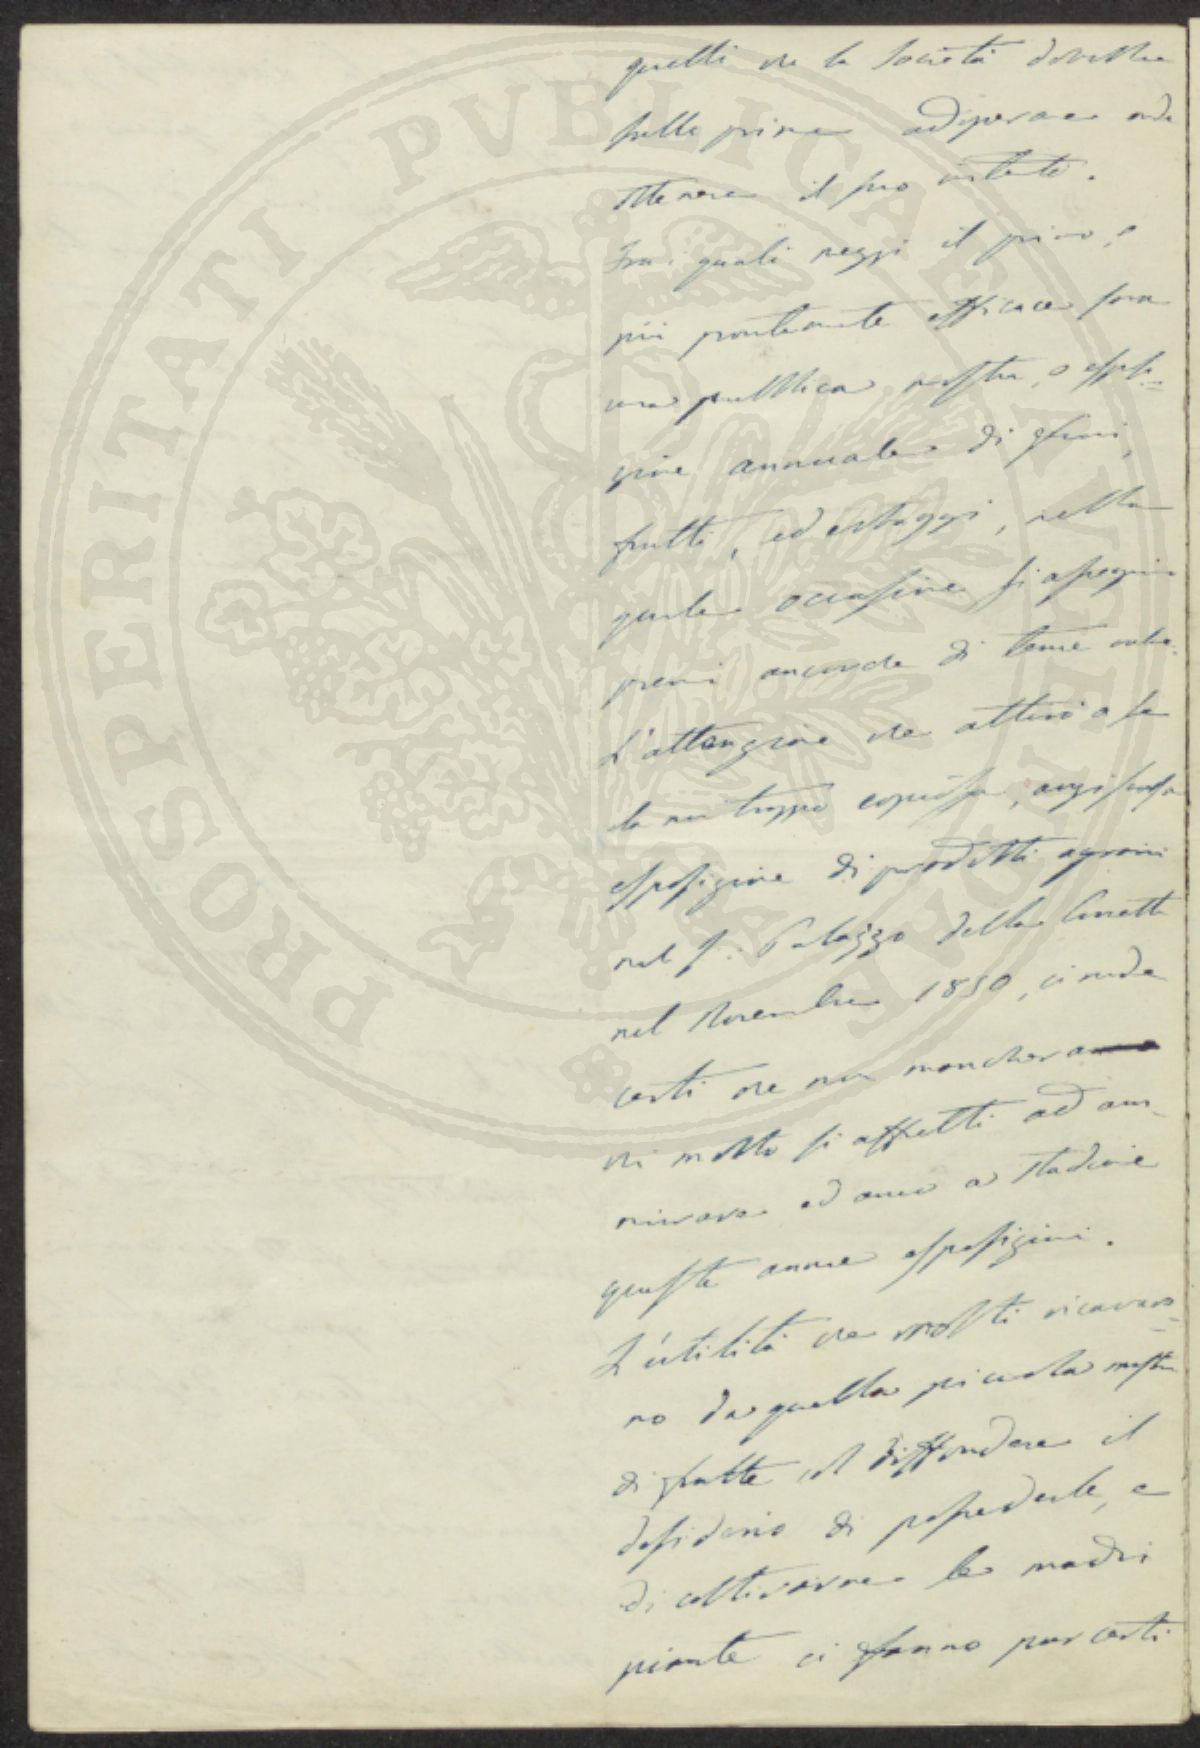 PROSPERITATI PVBLICAE AVGENDAE
quelli che la Società dovette
sulle prime adoperare onde
ottenere il suo intento.
Fra i quali mezzi il primo, e
più prontamente efficace sarà
una pubblica mostra, o esposi=
zione annuale di fiori,
frutti, ed ortaggi, nella
quale occasione si assegnino
premi ancorché di tenue
L'attenzione che attirò a se
la non troppo copiosa, anzi scarsa
esposizione di prodotti agrarii
nel Palazzo della
nel Novembre 1850, ci rende
certi che non mancherà
chi molto si affretti ad am-
mirare ed anco a studiare
queste annue esposizioni.
L'utilità che molti ricavaro=
no da quella piccola mostra
di frutte, col diffondere il
desiderio di possederle, e
di coltivarne le madri
piante ci fanno pur certi